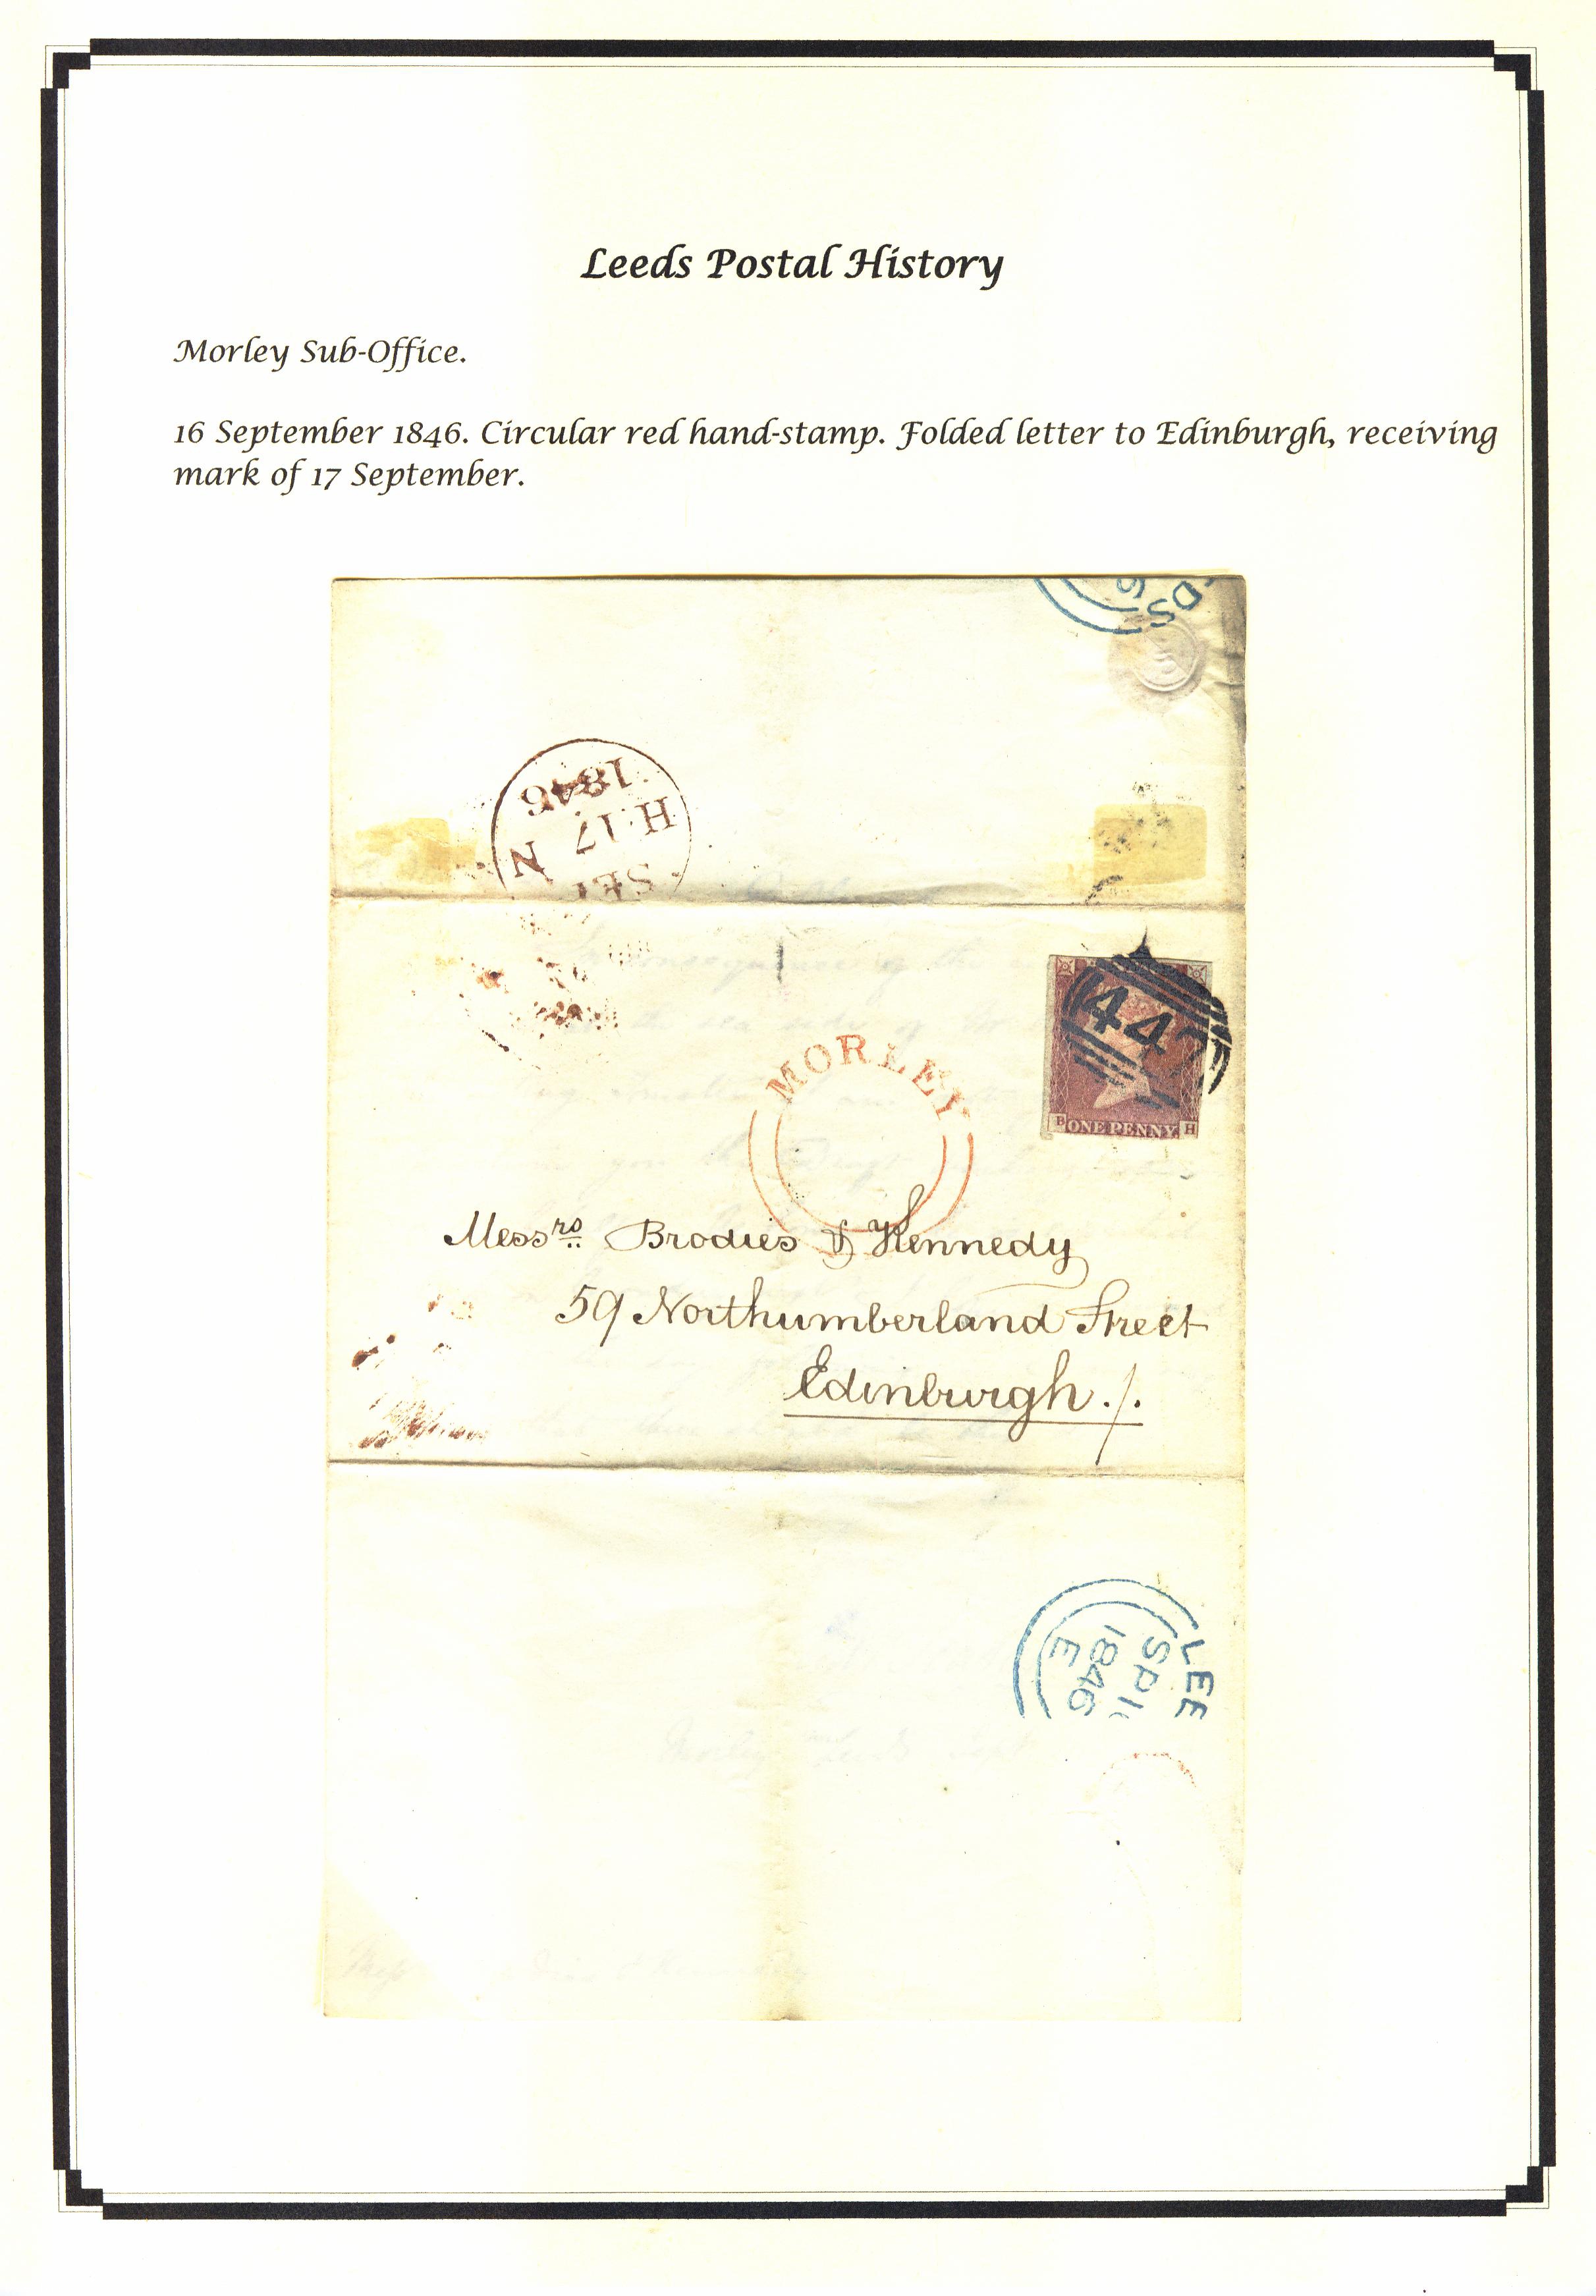 Leeds Postal History
Morley Sub-Office.
16 September 1846. Circular red hand-stamp. Folded letter to Edinburgh, receiving
mark of 17 September.
DS
6
1846
H 17 N
SEP
MORLEY
442
B ONE PENNY H
Messrs Brodies & Kennedy
59 Northumberland Street
Edinburgh./.
LEE
SP 1
1846
E